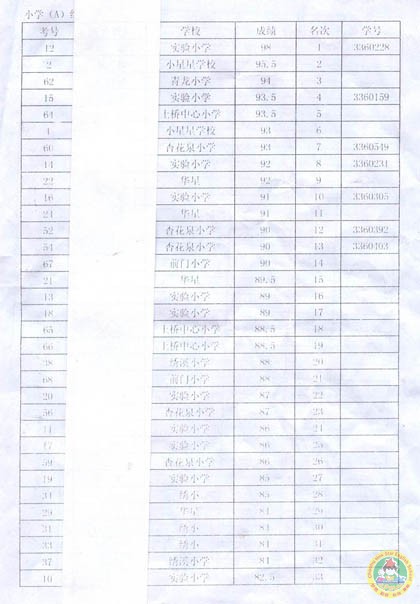 小学（A）
考号 学校 成绩 名次 学号
12 实验小学 98 1 3360228
2 小星星学校 95.5 2
62 青龙小学 94 3
15 实验小学 93.5 4 3360159
64 上桥中心小学 93.5 5
4 小星星学校 93 6
60 杏花泉小学 93 7 3360549
14 实验小学 92 8 3360231
22 华星 92 9
16 实验小学 91 10 3360305
24 华星 91 11
52 杏花泉小学 90 12 3360392
54 杏花泉小学 90 13 3360403
67 前门小学 90 14
21 华星 89.5 15
13 实验小学 89 16
18 实验小学 89 17
65 上桥中心小学 88.5 18
66 上桥中心小学 88.5 19
38 绣溪小学 88 20
68 前门小学 88 21
20 实验小学 87 22
56 杏花泉小学 87 23
11 实验小学 86 24
17 实验小学 86 25
59 杏花泉小学 86 26
19 实验小学 85 27
34 绣小 85 28
29 华星 84 29
31 绣小 84 30
33 绣小 84 31
37 绣溪小学 84 32
10 实验小学 82.5 33